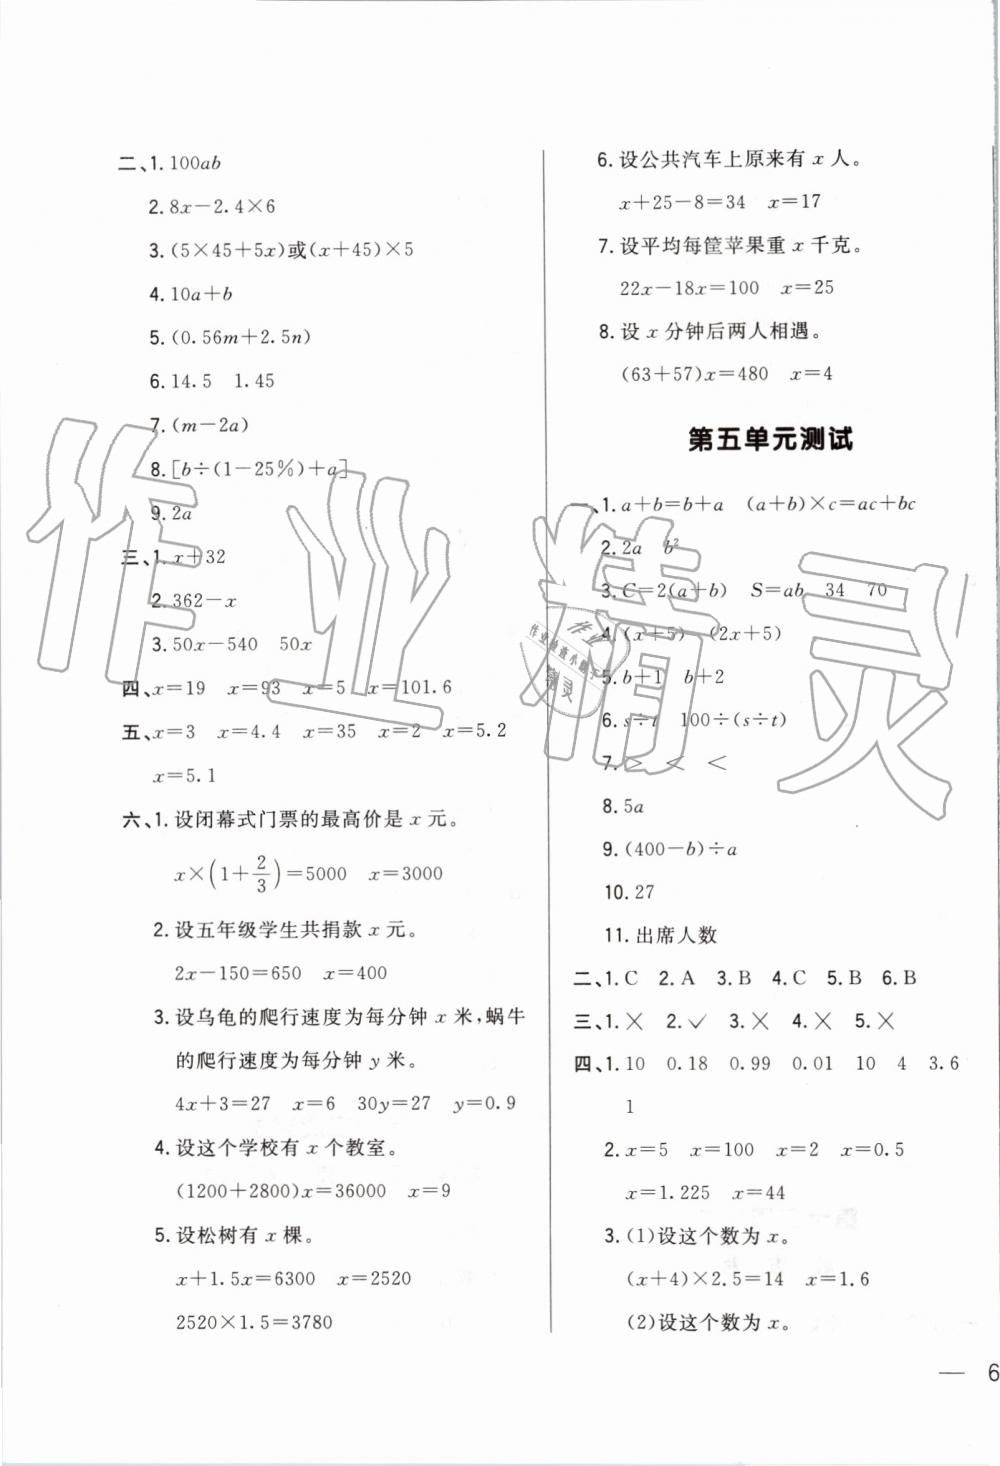 二、1. 100ab
2. 8x－2.4×6
3. (5×45+5x)或(x+45)×5
4. 10a+b
5. (0.56m+2.5n)
6. 14.5 1.45
7. (m－2a)
8. [b÷(1－25%)+a]
9. 2a
三、1. x+32
2. 362－x
3. 50x－540 50x
四、x=19 x=93 x=5 x=101.6
五、x=3 x=4.4 x=35 x=2 x=5.2
x=5.1
六、1. 设闭幕式门票的最高价是 x 元。
x×(1+2/3)=5000 x=3000
2. 设五年级学生共捐款 x 元。
2x－150=650 x=400
3. 设乌龟的爬行速度为每分钟 x 米,蜗牛
的爬行速度为每分钟 y 米。
4x+3=27 x=6 30y=27 y=0.9
4. 设这个学校有 x 个教室。
(1200+2800)x=36000 x=9
5. 设松树有 x 棵。
x+1.5x=6300 x=2520
2520×1.5=3780
6. 设公共汽车上原来有 x 人。
x+25－8=34 x=17
7. 设平均每筐苹果重 x 千克。
22x－18x=100 x=25
8. 设 x 分钟后两人相遇。
(63+57)x=480 x=4
第五单元测试
、1. a+b=b+a (a+b)×c=ac+bc
2. 2a b²
3. C=2(a+b) S=ab 34 70
4. (x+5) (2x+5)
5. b+1 b+2
6. s÷t 100÷(s÷t)
7. > < <
8. 5a
9. (400－b)÷a
10. 27
11. 出席人数
二、1. C 2. A 3. B 4. C 5. B 6. B
三、1. × 2. ✓ 3. × 4. × 5. ×
四、1. 10 0.18 0.99 0.01 10 4 3.6
1
2. x=5 x=100 x=2 x=0.5
x=1.225 x=44
3. (1)设这个数为 x。
(x+4)×2.5=14 x=1.6
(2)设这个数为 x。
— 6
作业精灵
作业
作业检查小助手
精灵